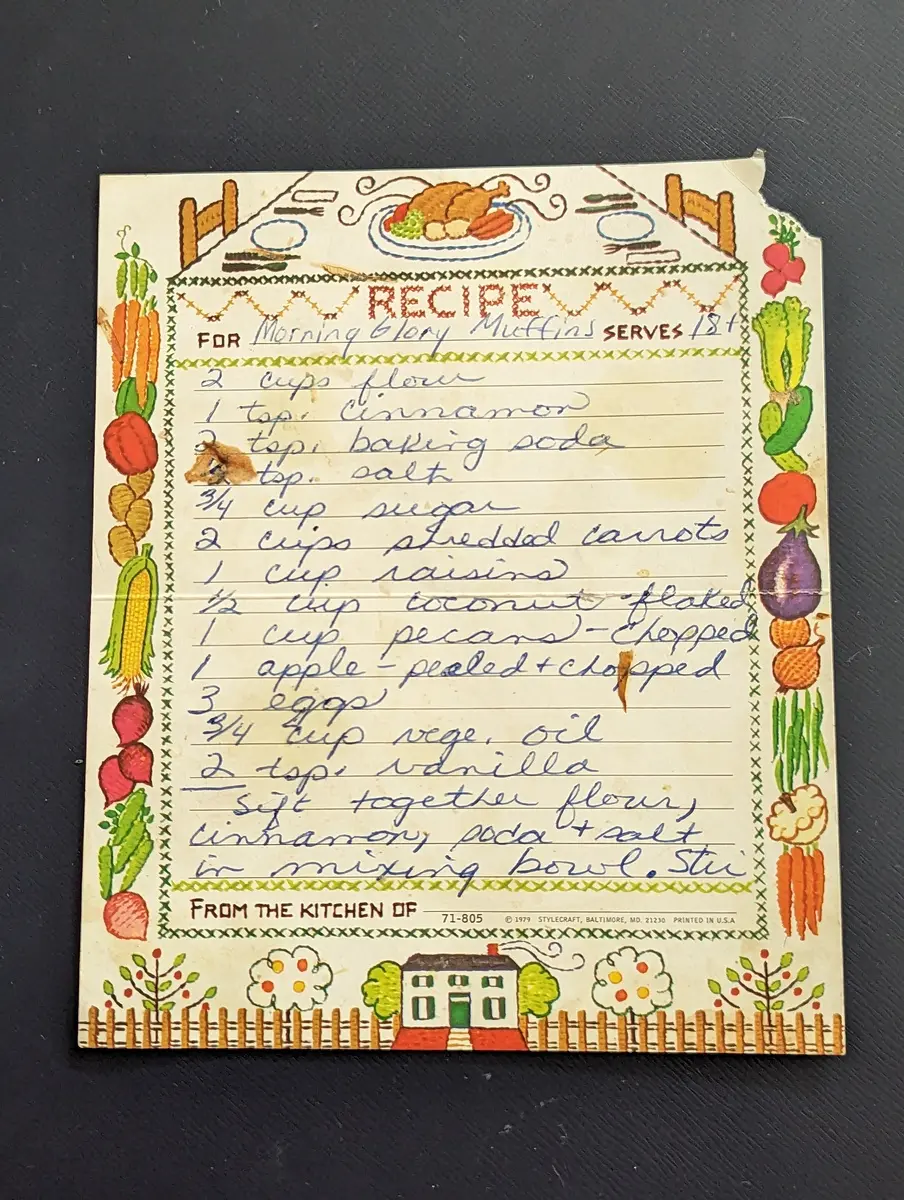 RECIPE
FOR Morning Glory Muffins SERVES 18+
2 cups flour
1 tsp. cinnamon
2 tsp. baking soda
tsp. salt
3/4 cup sugar
2 cups shredded carrots
1 cup raisins
1/2 cup coconut-flaked
1 cup pecans-chopped
1 apple-peeled+chopped
3 eggs
3/4 cup vege. oil
2 tsp. vanilla
Sift together flour,
cinnamon, soda + salt
in mixing bowl. Stir
FROM THE KITCHEN OF
71-805 © 1979 STYLECRAFT, BALTIMORE, MD. 21230 PRINTED IN U.S.A